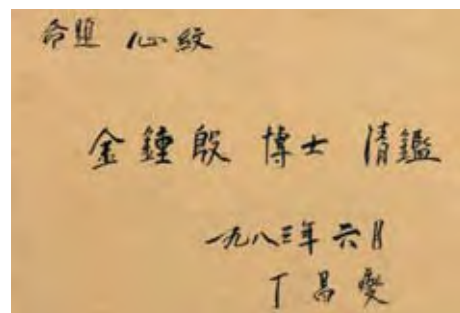 命題 心紋
金鍾殷 博士 清鑑
一九八三年 六月
丁昌燮